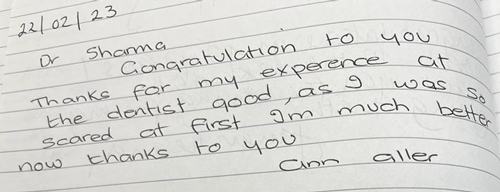 22/02/23
Dr Sharma
Congratulation to you
Thanks for my experence at
the dentist good, as I was so
scared at first Im much better
now thanks to you
ann aller